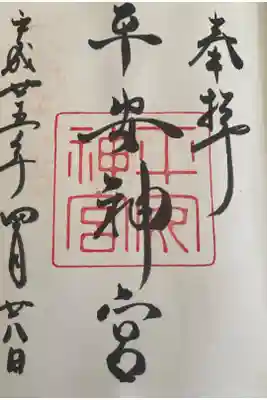 奉拝
平安神宮
平安神宮
平成廿五年四月廿八日